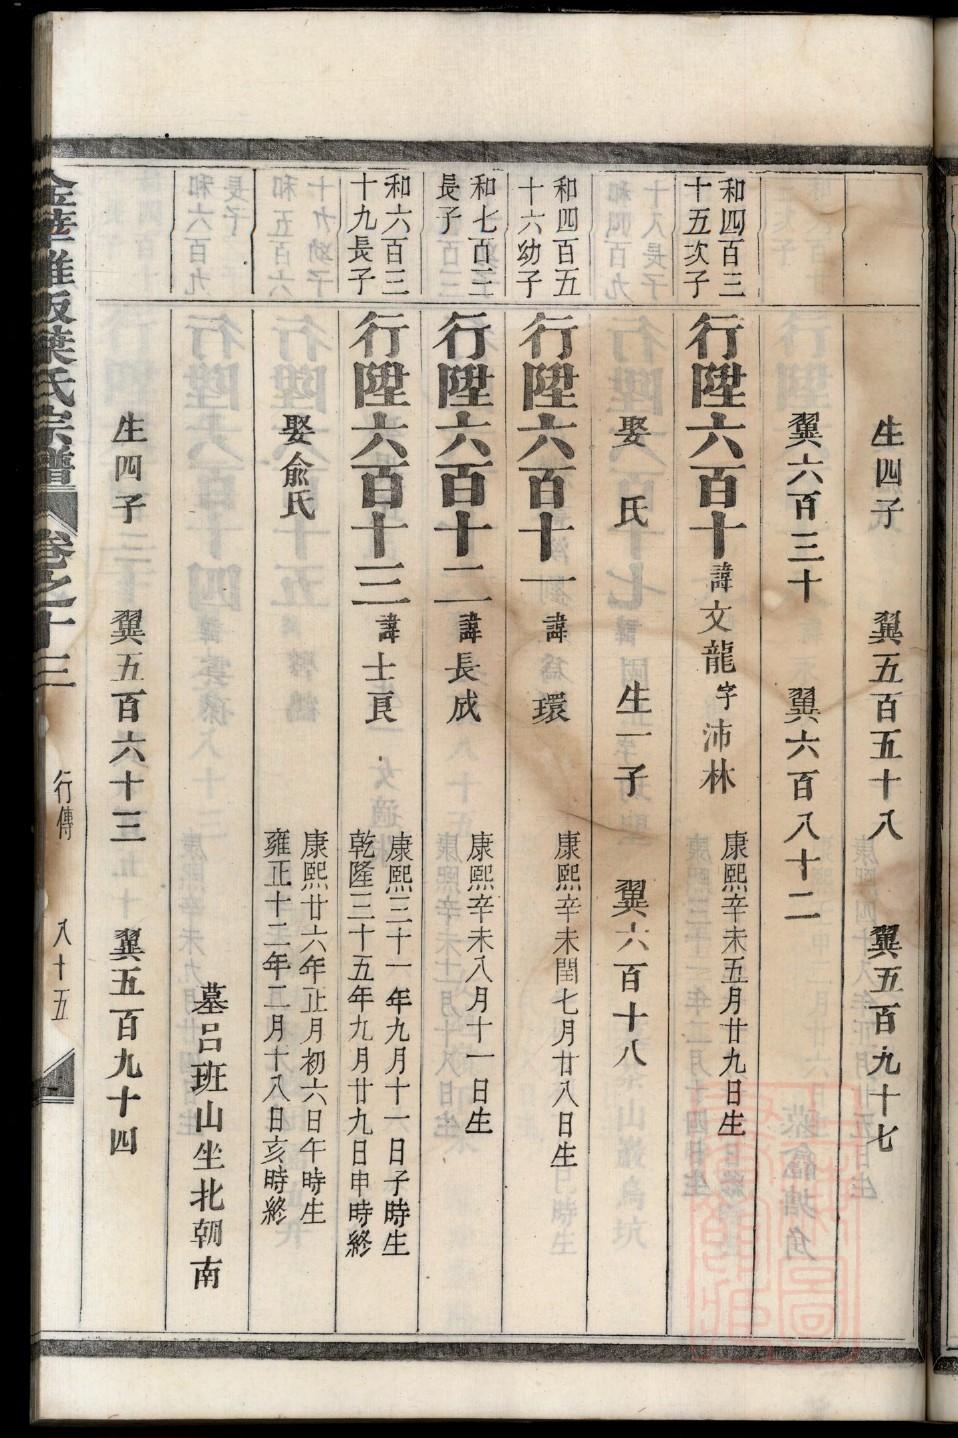 生四子 翼五百五十八 翼五百九十七
翼六百三十 翼六百八十二
和四百三十五次子
行陞六百十 諱文龍 字沛林 康熙辛未五月廿九日生
娶 氏 生一子 翼六百十八
和四百五十六幼子
行陞六百十一 諱環 康熙辛未閏七月廿八日生
和七百三長子
行陞六百十二 諱長成 康熙辛未八月十一日生
和六百三十九長子
行陞六百十三 諱士良 康熙三十一年九月十一日子時生
乾隆三十五年九月廿九日申時終
娶俞氏 康熙廿六年正月初六日午時生
雍正十二年二月十八日亥時終
墓呂班山坐北朝南
生四子 翼五百六十三 翼五百九十四
葉氏宗譜 卷之十三 行傳 八十五